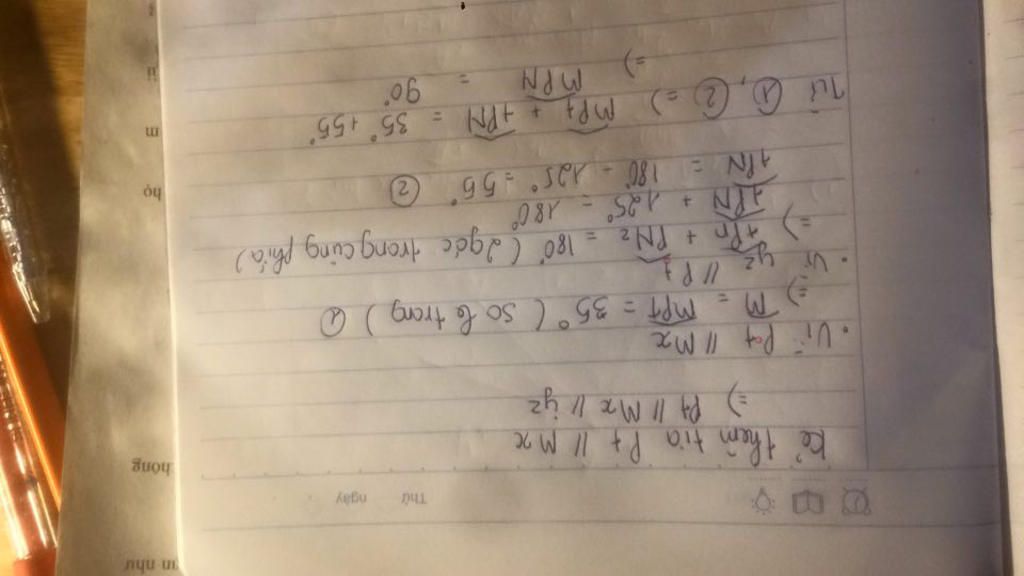 Thứ ngày
Kẻ thêm tia Pt // Mx
=) Pt // Mx // yz
. Vì Pt // Mx
=) M = MPt = 35° (So le trong) ①
. Vì yz // Pt
=) tPn + PNz = 180° (2 góc trong cùng phía)
tPN + 125° = 180°
tPN = 180° - 125° = 55° ②
Từ ①, ② =) MPt + tPN = 35° + 55°
=) MPN = 90°
hông
họ
m
ii
ın như